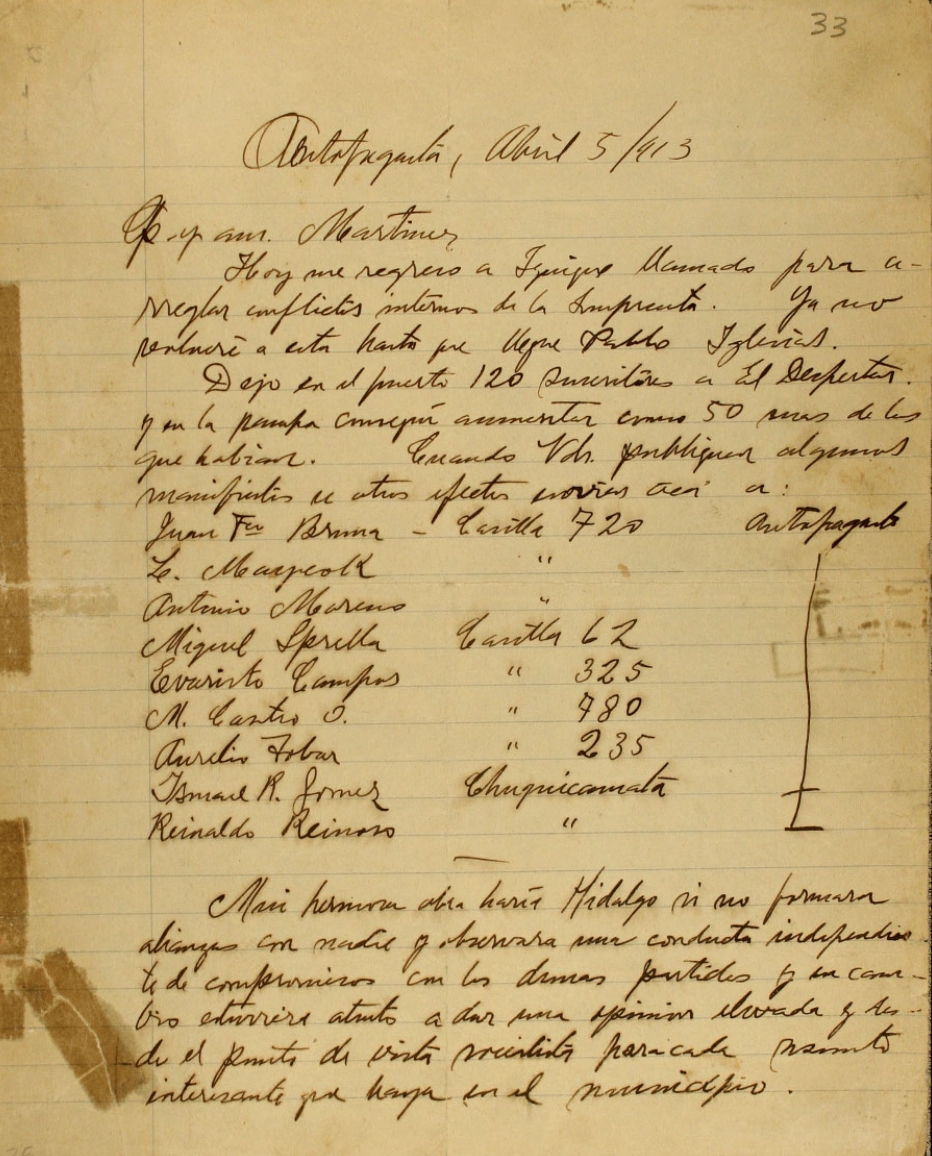 33
Antofagasta, Abril 5/913
Cp. y am. Martinez
Hoy me regreso a Iquique llamado para a-
rreglar conflictos internos de la Imprenta. Ya no
volveré a esta hasta que llegue Pablo Iglesias.
Dejo en el puerto 120 suscritores a El Despertar.
y en la pampa conseguí aumentar como 50 mas de los
que habian. Cuando Vds. publiquen algunos
manifiestos u otros efectos envien acá a:
Juan Fco Bruna - Casilla 720 Antofagasta
L. Maypcolk "
Antonio Moreno "
Miguel Sprella Casilla 62
Evaristo Campos " 325
M. Castro O. " 780
Aurelio Tobar " 235
Ismael R. Gomez Chuquicamata
Reinaldo Reinoso "
Mui hermosa obra haría Hidalgo si no formara
alianzas con nadie y observara una conducta independien
te de compromisos con los demas partidos y en cam-
bio estuviera atento a dar una opinion elevada y des-
de el punto de vista socialista para cada asunto
interesante que haya en el municipio.